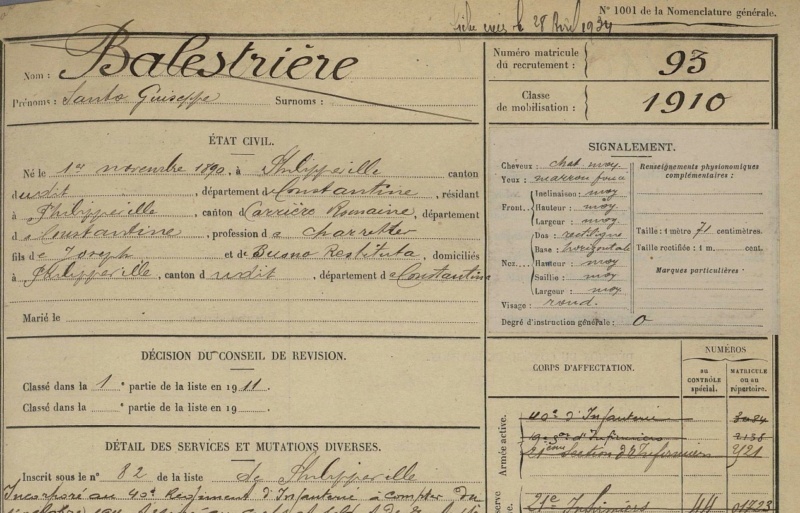 N° 1001 de la Nomenclature générale.
28 Avril 1934
Nom : Balestrière
Prénoms : Santo Guiseppe Surnoms :
Numéro matricule du recrutement : 93
Classe de mobilisation : 1910
ÉTAT CIVIL.
Né le 1er novembre 1890, à Philippeville canton
dudit, département de Constantine, résidant
à Philippeville, canton de Carrière Romaine, département
de Constantine, profession de charretier
fils de Joseph et de Buono Restituta, domiciliés
à Philippeville, canton dudit, département de Constantine
Marié le
SIGNALEMENT.
Cheveux : chat. moy
Yeux : marron foncé
Front. Inclinaison : moy
Hauteur : moy
Largeur : moy
Nez. Dos : rectiligne
Base : horizontale
Hauteur : moy
Saillie : moy
Largeur : moy
Visage : rond.
Degré d'instruction générale : 0
Renseignements physionomiques complémentaires :
Taille : 1 mètre 71 centimètres.
Taille rectifiée : 1 m. cent.
Marques particulières :
DÉCISION DU CONSEIL DE REVISION.
Classé dans la 1e partie de la liste en 1911.
Classé dans la e partie de la liste en 19
DÉTAIL DES SERVICES ET MUTATIONS DIVERSES.
Inscrit sous le n° 82 de la liste de Philippeville
Incorporé au 40e Régiment d'Infanterie à compter du
CORPS D'AFFECTATION.
NUMÉROS
au CONTRÔLE spécial.
MATRICULE ou au répertoire.
Armée active.
40e d'Infanterie 3084
19e son d'Infirmiers 2138
21ème Section d'Infirmiers 421
21e Infirmiers 44 01723